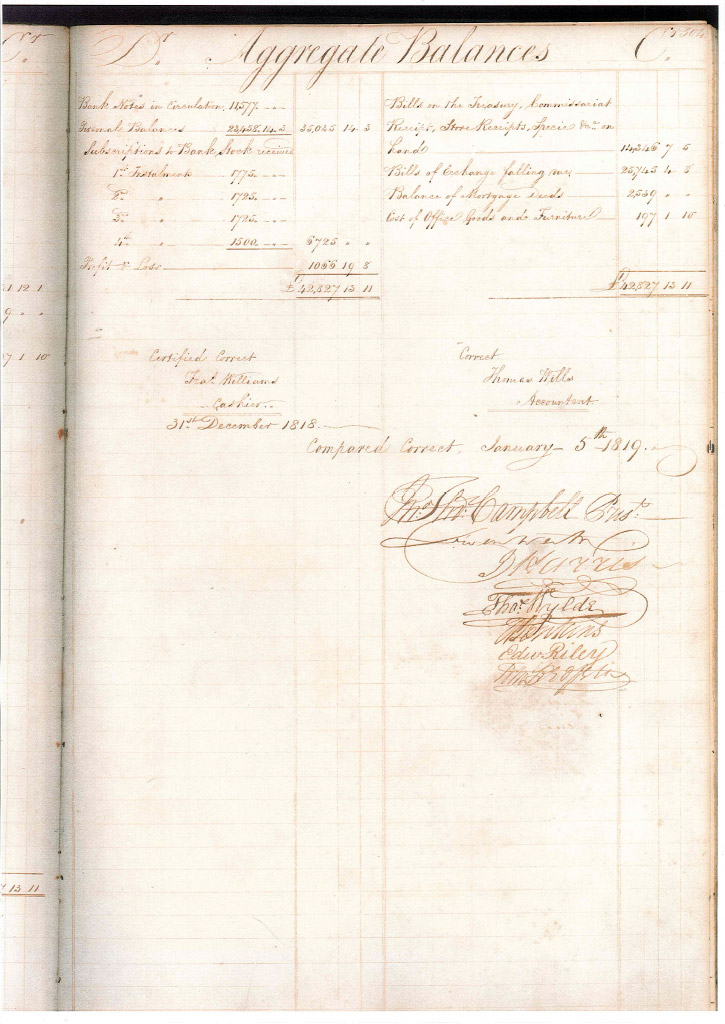 Dr Aggregate Balances Cr
Bank Notes in Circulation 11577 - -
Personal Balances 23458.14.3 35,035 14 3
Subscriptions to Bank Stock received
1st Instalment 1775 - -
2d " 1725 - -
3d " 1725 - -
4th " 1500 - - 6725 " "
Profit & Loss 1066 19 8
£42,827 13 11
Bills on the Treasury, Commissariat
Receipts, Store Receipts, Specie &ca on
hand 14,346 7 5
Bills of Exchange falling due 25,745 4 8
Balance of Mortgage Deeds 2,539 " "
Cost of Office Goods and Furniture 197 1 10
£42,827 13 11
Certified Correct
Fras Williams
Cashier
31st December 1818.
Correct
Thomas Wills
Accountant
Compared Correct, January 5th 1819.
Jno Thos Campbell Prest
D Wentworth
J Harris
Thos Wylde
Jenkins
Edw Riley
1 12 1
9 " "
7 1 10
13 11